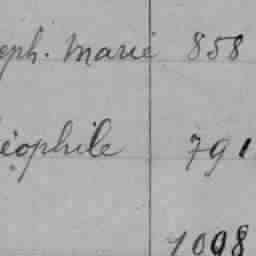 eph. Marie 858
éophile 791
1098